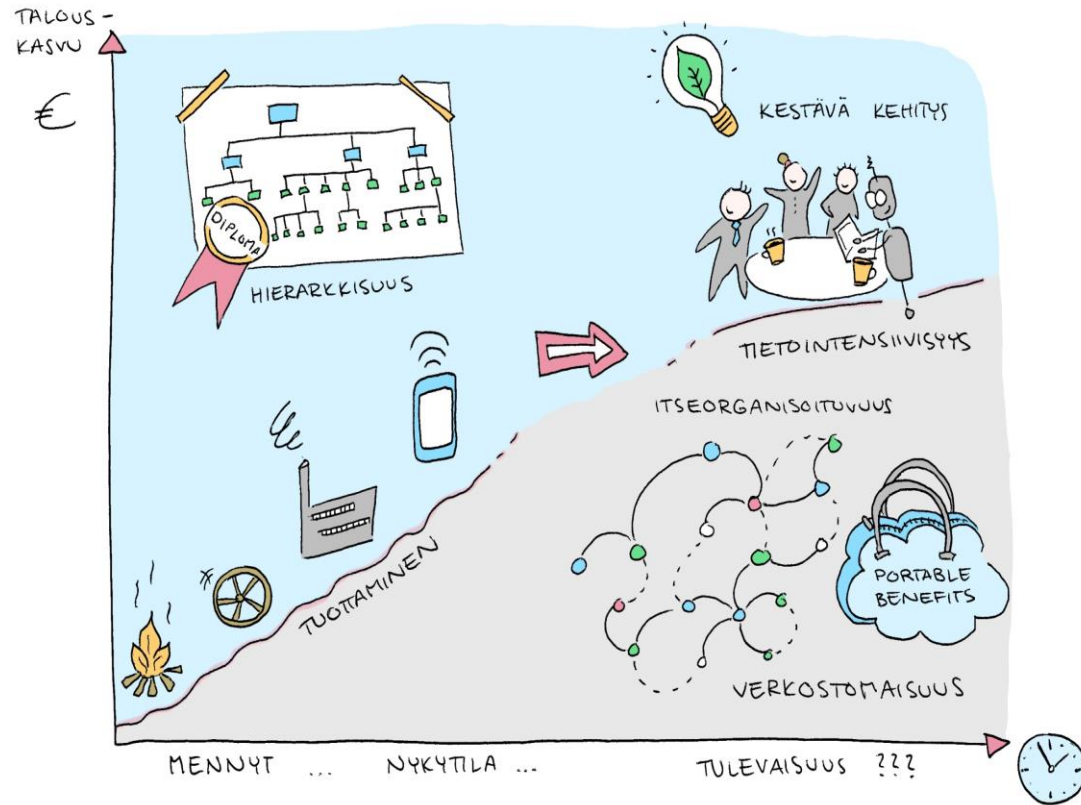 TALOUS-
KASVU
€
KESTÄVÄ KEHITYS
DIPLOMA
HIERARKKISUUS
TIETOINTENSIIVISYYS
ITSEORGANISOITUVUUS
TUOTTAMINEN
PORTABLE
BENEFITS
VERKOSTOMAISUUS
MENNYT ... NYKYTILA ... TULEVAISUUS ???